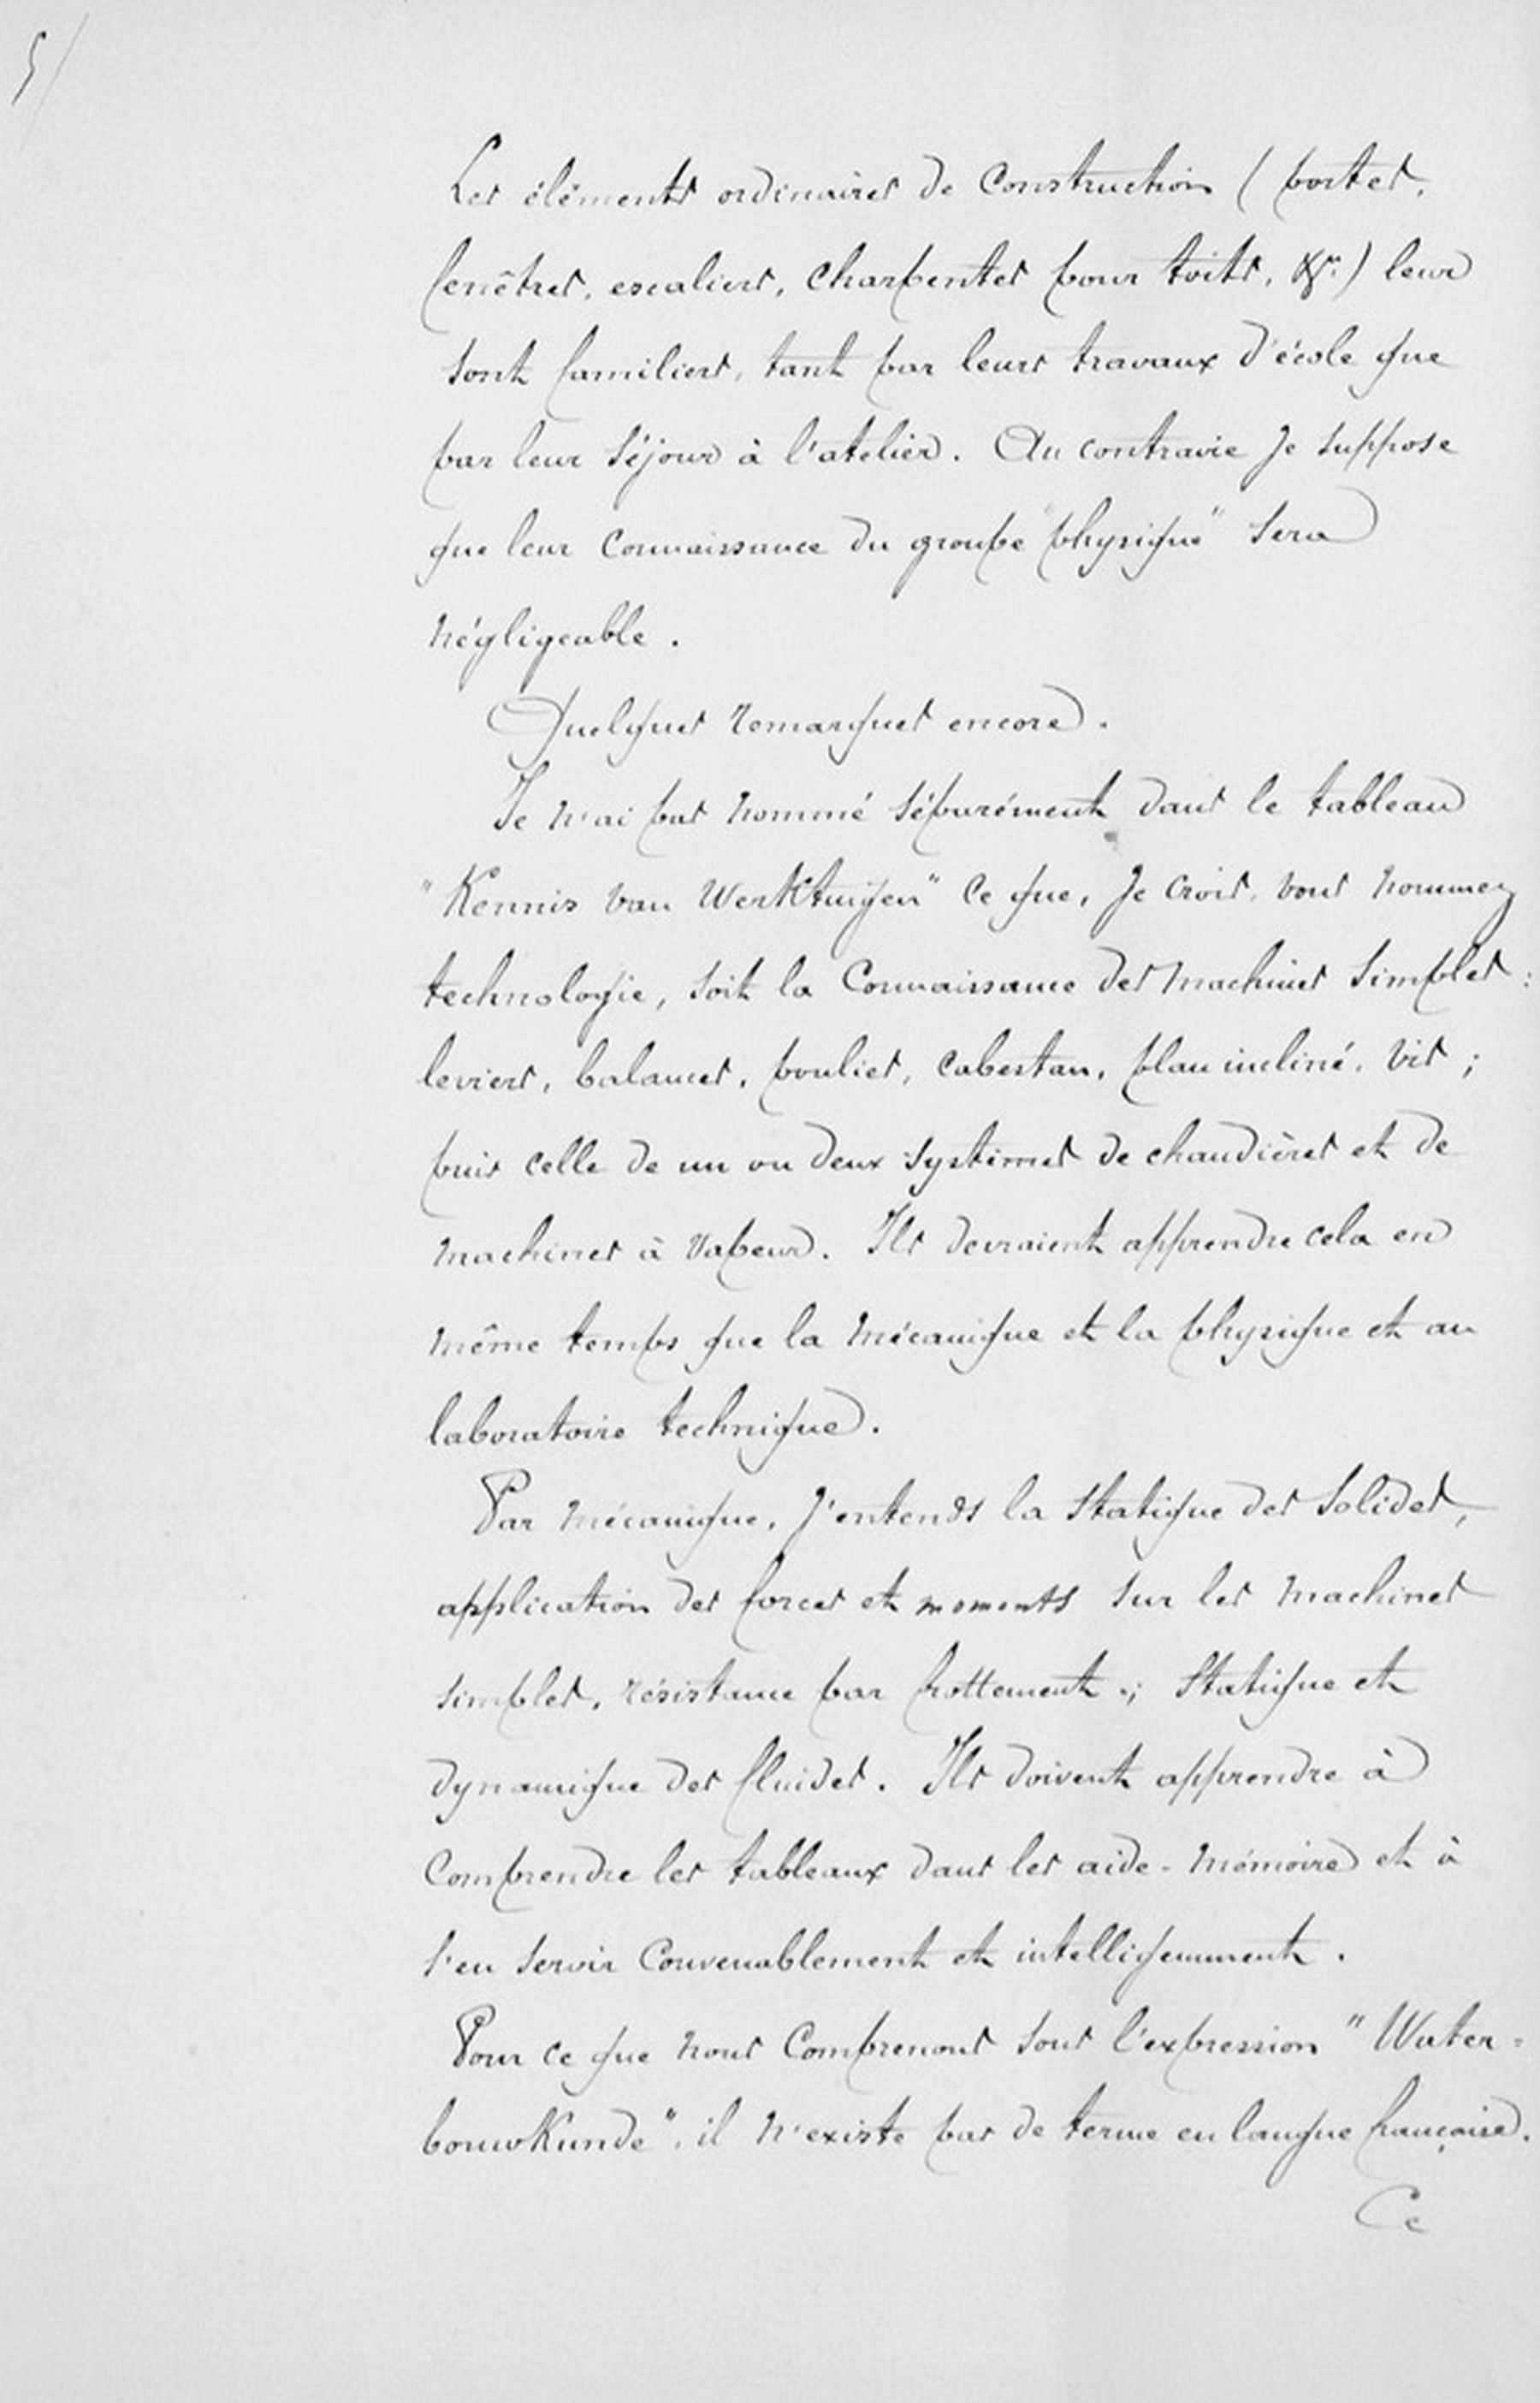 5/
Les éléments ordinaires de construction (portes,
fenêtres, escaliers, charpentes pour toits, &c.) leur
sont familiers, tant par leurs travaux d'école que
par leur séjour à l'atelier. Au contraire je suppose
que leur connaissance du groupe "physique" sera
négligeable.
Quelques remarques encore.
Je n'ai pas nommé séparément dans le tableau
"Kennis van Werktuigen" ce que, je crois, vous nommez
technologie, soit la connaissance des machines simples:
leviers, balances, poulies, cabestan, plan incliné, vis;
puis celle de un ou deux systèmes de chaudières et de
machines à vapeur. Ils devraient apprendre cela en
même temps que la mécanique et la physique et au
laboratoire technique.
Par mécanique, j'entends la statique des solides,
application des forces et moments sur les machines
simples, résistance par frottement.; statique et
dynamique des fluides. Ils doivent apprendre à
comprendre les tableaux dans les aide-mémoire et à
s'en servir convenablement et intelligemment.
Pour ce que nous comprenons sous l'expression "Water=
bouwkunde", il n'existe pas de terme en langue française.
Ce